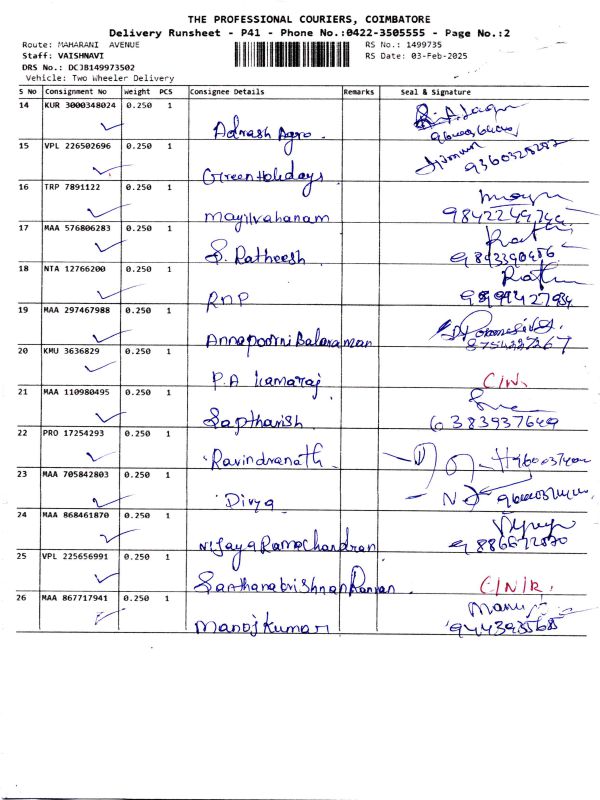 THE PROFESSIONAL COURIERS, COIMBATORE
Delivery Runsheet - P41 - Phone No.:0422-3505555 - Page No.:2
Route: MAHARANI AVENUE RS No.: 1499735
Staff: VAISHNAVI RS Date: 03-Feb-2025
DRS No.: DCJB149973502
Vehicle: Two Wheeler Delivery
S No Consignment No Weight PCS Consignee Details Remarks Seal & Signature
14 KUR 3000348024 0.250 1
Adnash Agro
15 VPL 226502696 0.250 1
Green Holidays 9360328282
16 TRP 7891122 0.250 1
Mayilvahanam
17 MAA 576806283 0.250 1
S. Ratheesh
18 NTA 12766200 0.250 1
RNP
19 MAA 297467988 0.250 1
Annapoorni Balaraman
20 KMU 3636829 0.250 1
P.A Kamaraj C/N.
21 MAA 110980495 0.250 1
Saptharish 6383937649
22 PRO 17254293 0.250 1
Ravindranath
23 MAA 705842803 0.250 1
Divya
24 MAA 868461870 0.250 1
Vijaya Ramachandran
25 VPL 225656991 0.250 1
Santhanakrishnan Raman C/N/R.
26 MAA 867717941 0.250 1
Manoj Kumar 9443935685